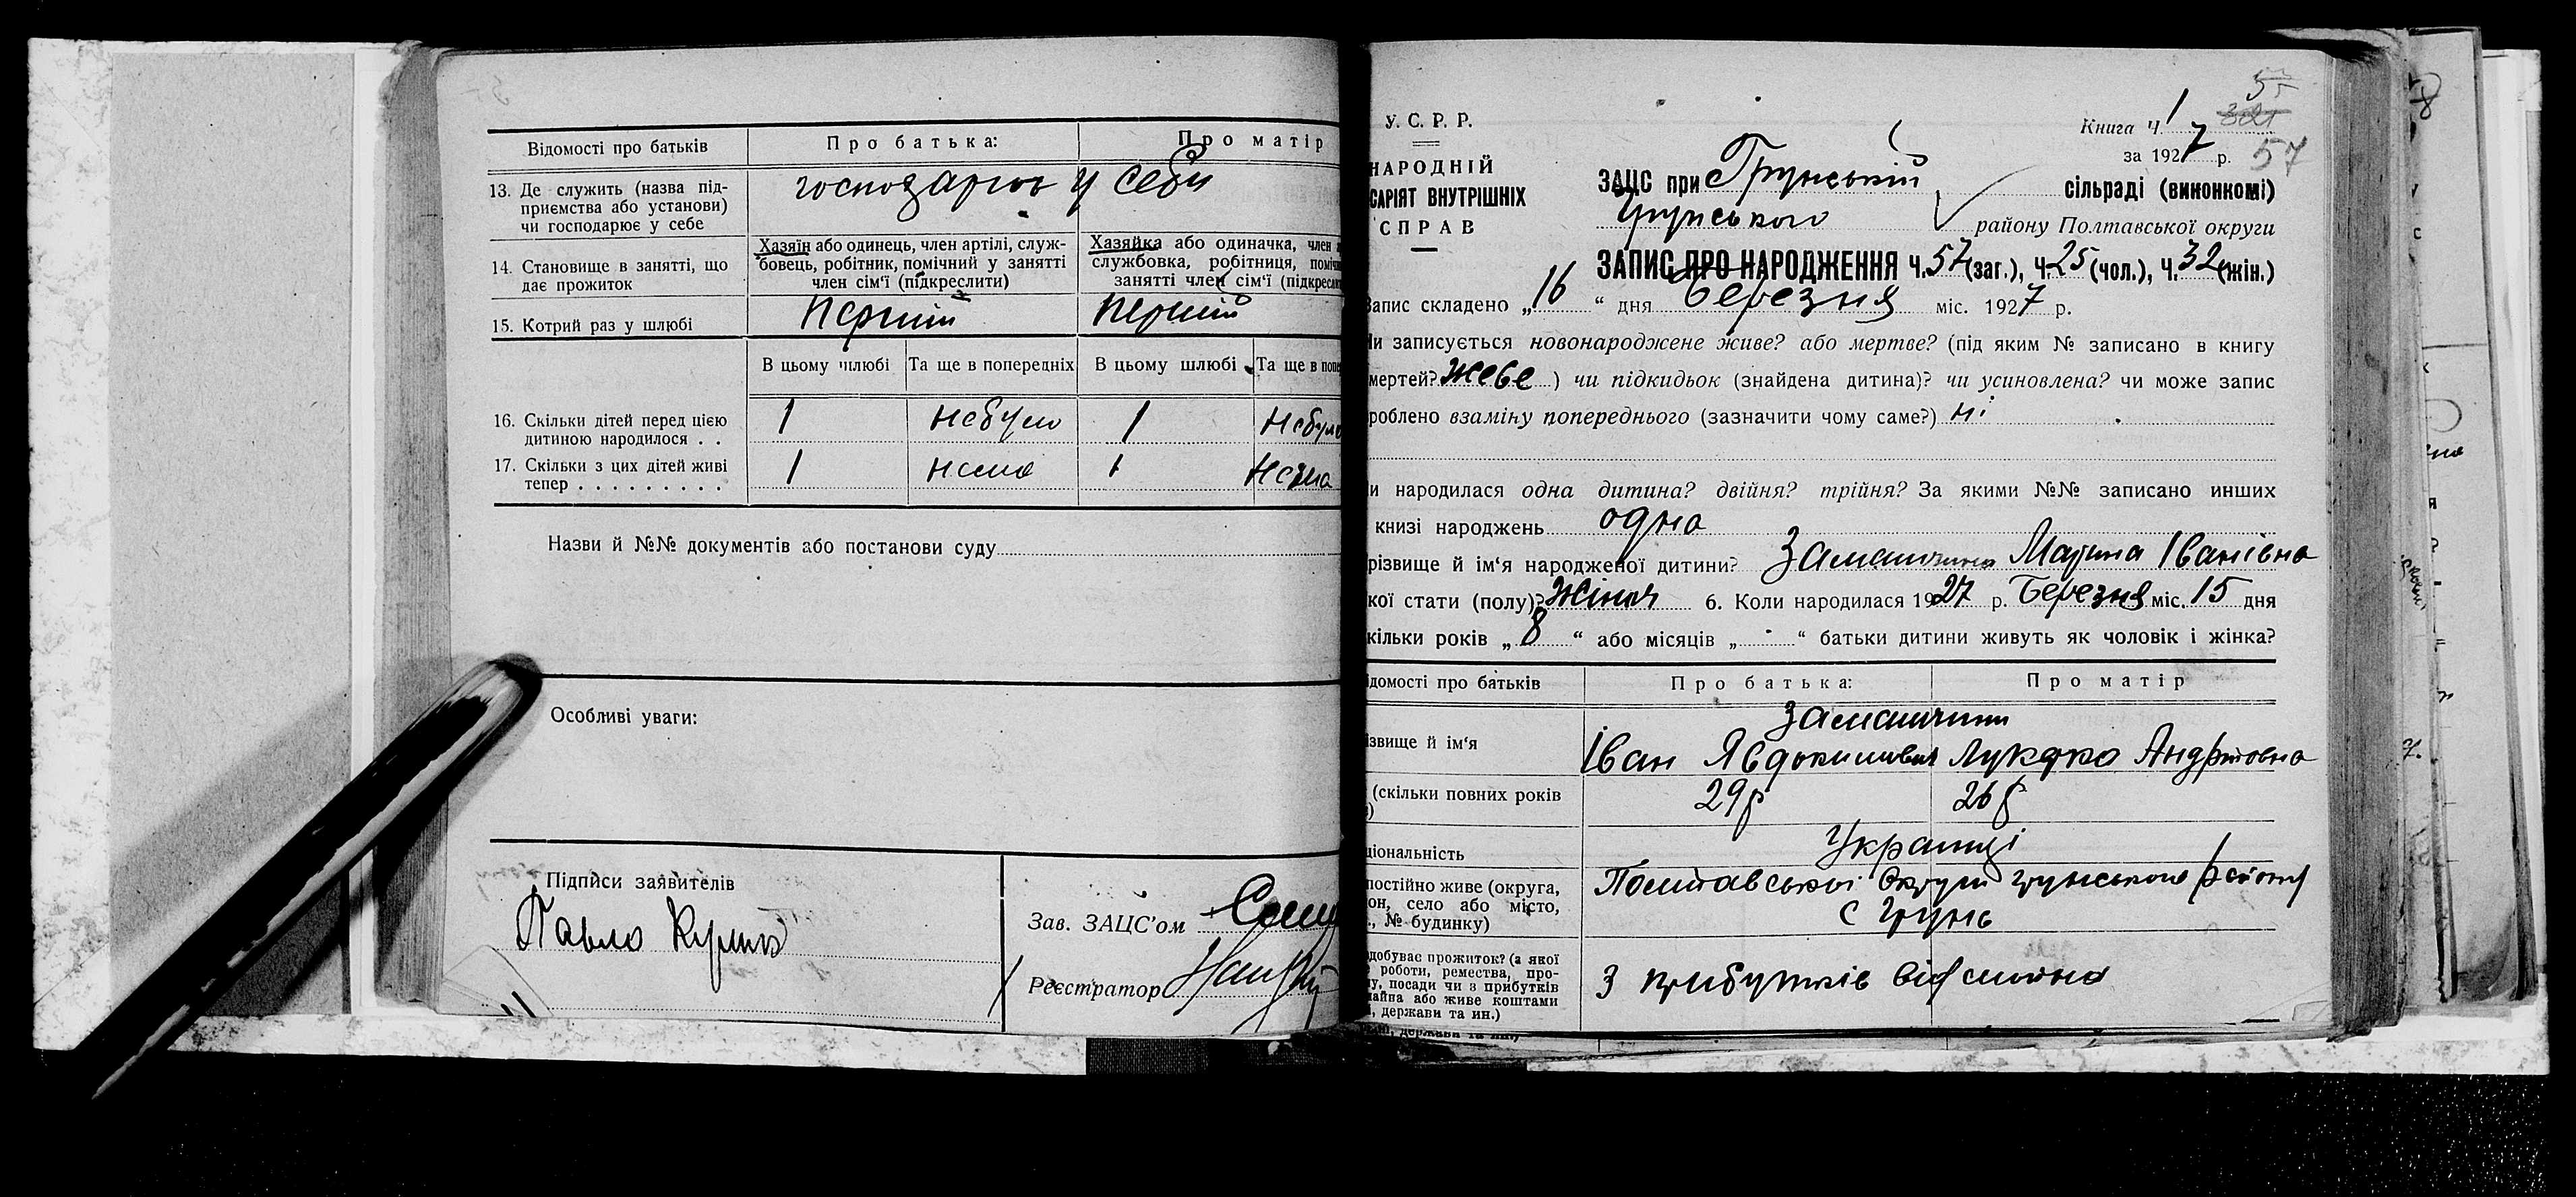 Відомості про батьків
Про батька:
Про матір
13. Де служить (назва під-
приємства або установи)
чи господарює у себе
господарює у себе
14. Становище в занятті, що
дає прожиток
Хазяїн або одинець, член артілі, служ-
бовець, робітник, помічний у занятті
член сім'ї (підкреслити)
Хазяйка або одиначка, член
службовка, робітниця, поміч
занятті член сім'ї (підкресли
15. Котрий раз у шлюбі
перший
перший
В цьому шлюбі
Та ще в попередніх
В цьому шлюбі
Та ще в попе
16. Скільки дітей перед цією
дитиною народилося . .
1
небуло
1
небуло
17. Скільки з цих дітей живі
тепер . . . . . . . . .
1
нема
1
нема
Назви й №№ документів або постанови суду
Особливі уваги:
Підписи заявителів
Павло
Зав. ЗАЦС'ом
Реєстратор
У. С. Р. Р.
НАРОДНІЙ
САРІЯТ ВНУТРІШНІХ
СПРАВ
Книга Ч. 1
за 1927 р.
57
ЗАЦС при Грунській сільраді (виконкомі)
Грунського району Полтавської округи
ЗАПИС ПРО НАРОДЖЕННЯ Ч. 57 (заг.), Ч. 25 (чол.), Ч. 32 (жін.)
Запис складено „16“ дня Березня міс. 1927 р.
Чи записується новонароджене живе? або мертве? (під яким № записано в книгу
мертей? живе ) чи підкидьок (знайдена дитина)? чи усиновлена? чи може запис
роблено взаміну попереднього (зазначити чому саме?) ні
и народилася одна дитина? двійня? трійня? За якими №№ записано инших
книзі народжень одна
різвище й ім'я народженої дитини? Марина Іванівна
кої стати (полу)? Жіноч 6. Коли народилася 1927 р. Березня міс. 15 дня
кільки років „8“ або місяців „ “ батьки дитини живуть як чоловік і жінка?
ідомості про батьків
Про батька:
Про матір
ізвище й ім'я
Іван Явдокимович
Андріївна
(скільки повних років
29 р
26 р
ціональність
Українці
постійно живе (округа,
он, село або місто,
., № будинку)
Полтавської Округи грунського району
с Грунь
добуває прожиток? (з якої
роботи, ремества, про-
у, посади чи з прибутків
майна або живе коштами
, держави та ин.)
З прибутків від